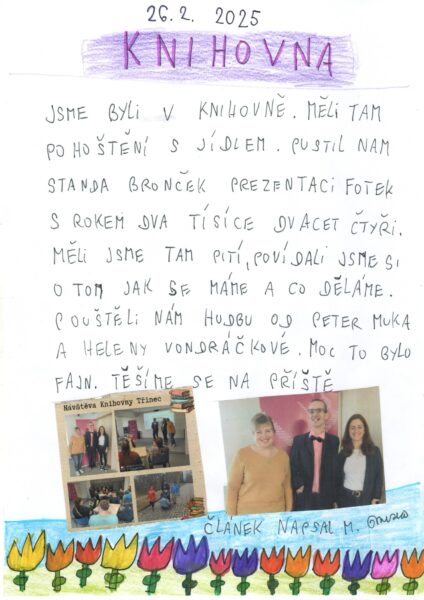 26. 2. 2025
KNIHOVNA
JSME BYLI V KNIHOVNĚ. MĚLI TAM
POHOŠTĚNÍ S JÍDLEM. PUSTIL NAM
STANDA BRONČEK PREZENTACI FOTEK
S ROKEM DVA TÍSÍCE DVACET ČTYŘI.
MĚLI JSME TAM PITÍ, POVÍDALI JSME SI
O TOM JAK SE MÁME A CO DĚLÁME.
POUŠTĚLI NÁM HUDBU OD PETER MUKA
A HELENY VONDRÁČKOVÉ. MOC TO BYLO
FAJN. TĚŠÍME SE NA PŘÍŠTĚ
Návštěva Knihovny Třinec
ČLÁNEK NAPSAL M.